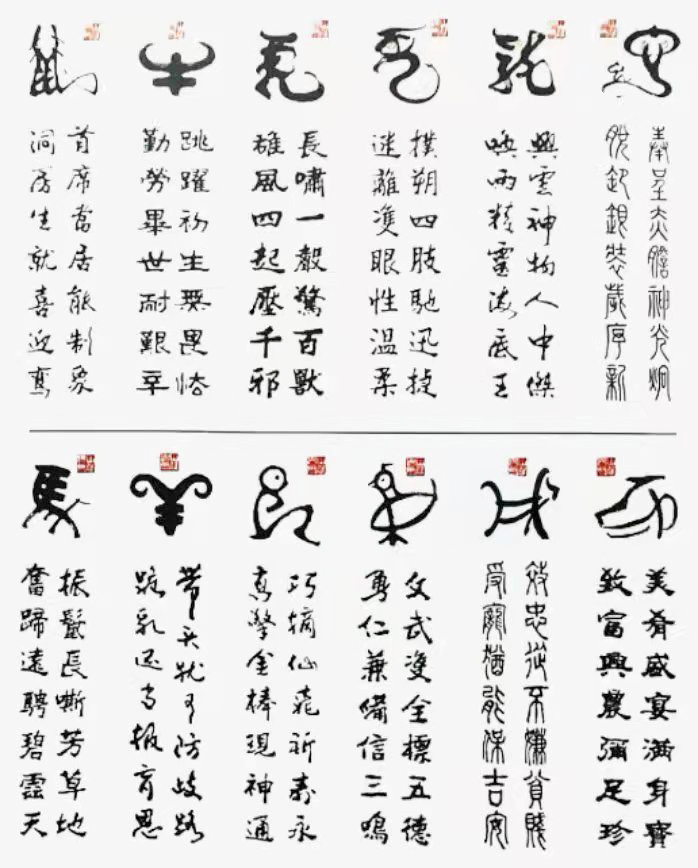 鼠
首席當居能制象
洞房生就喜迎鸞
牛
跳躍初生無畏怯
勤勞畢世耐艱辛
虎
長嘯一聲驚百獸
雄風四起壓千邪
兔
撲朔四肢馳迅捷
迷離雙眼性溫柔
龍
興雲神物人中傑
喚雨精靈海底王
蛇
奉呈赤膽神光炯
脫卸銀裝歲序新
馬
振鬣長嘶芳草地
奮蹄遠騁碧雲天
羊
帶头犹可防歧路
跪乳还当報育恩
巧摘仙桃祈壽永
高擎金棒現神通
文武雙全標五德
勇仁兼備信三鳴
效忠從不嫌貧賤
受寵猶能保吉安
美肴盛宴滿身寶
致富興農彌足珍